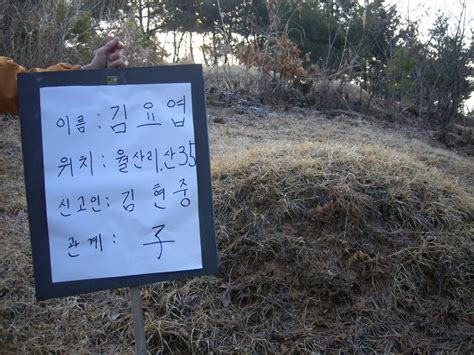 이름 : 김요엽
위치 : 월산리.산35
신고인 : 김현중
관계 : 子